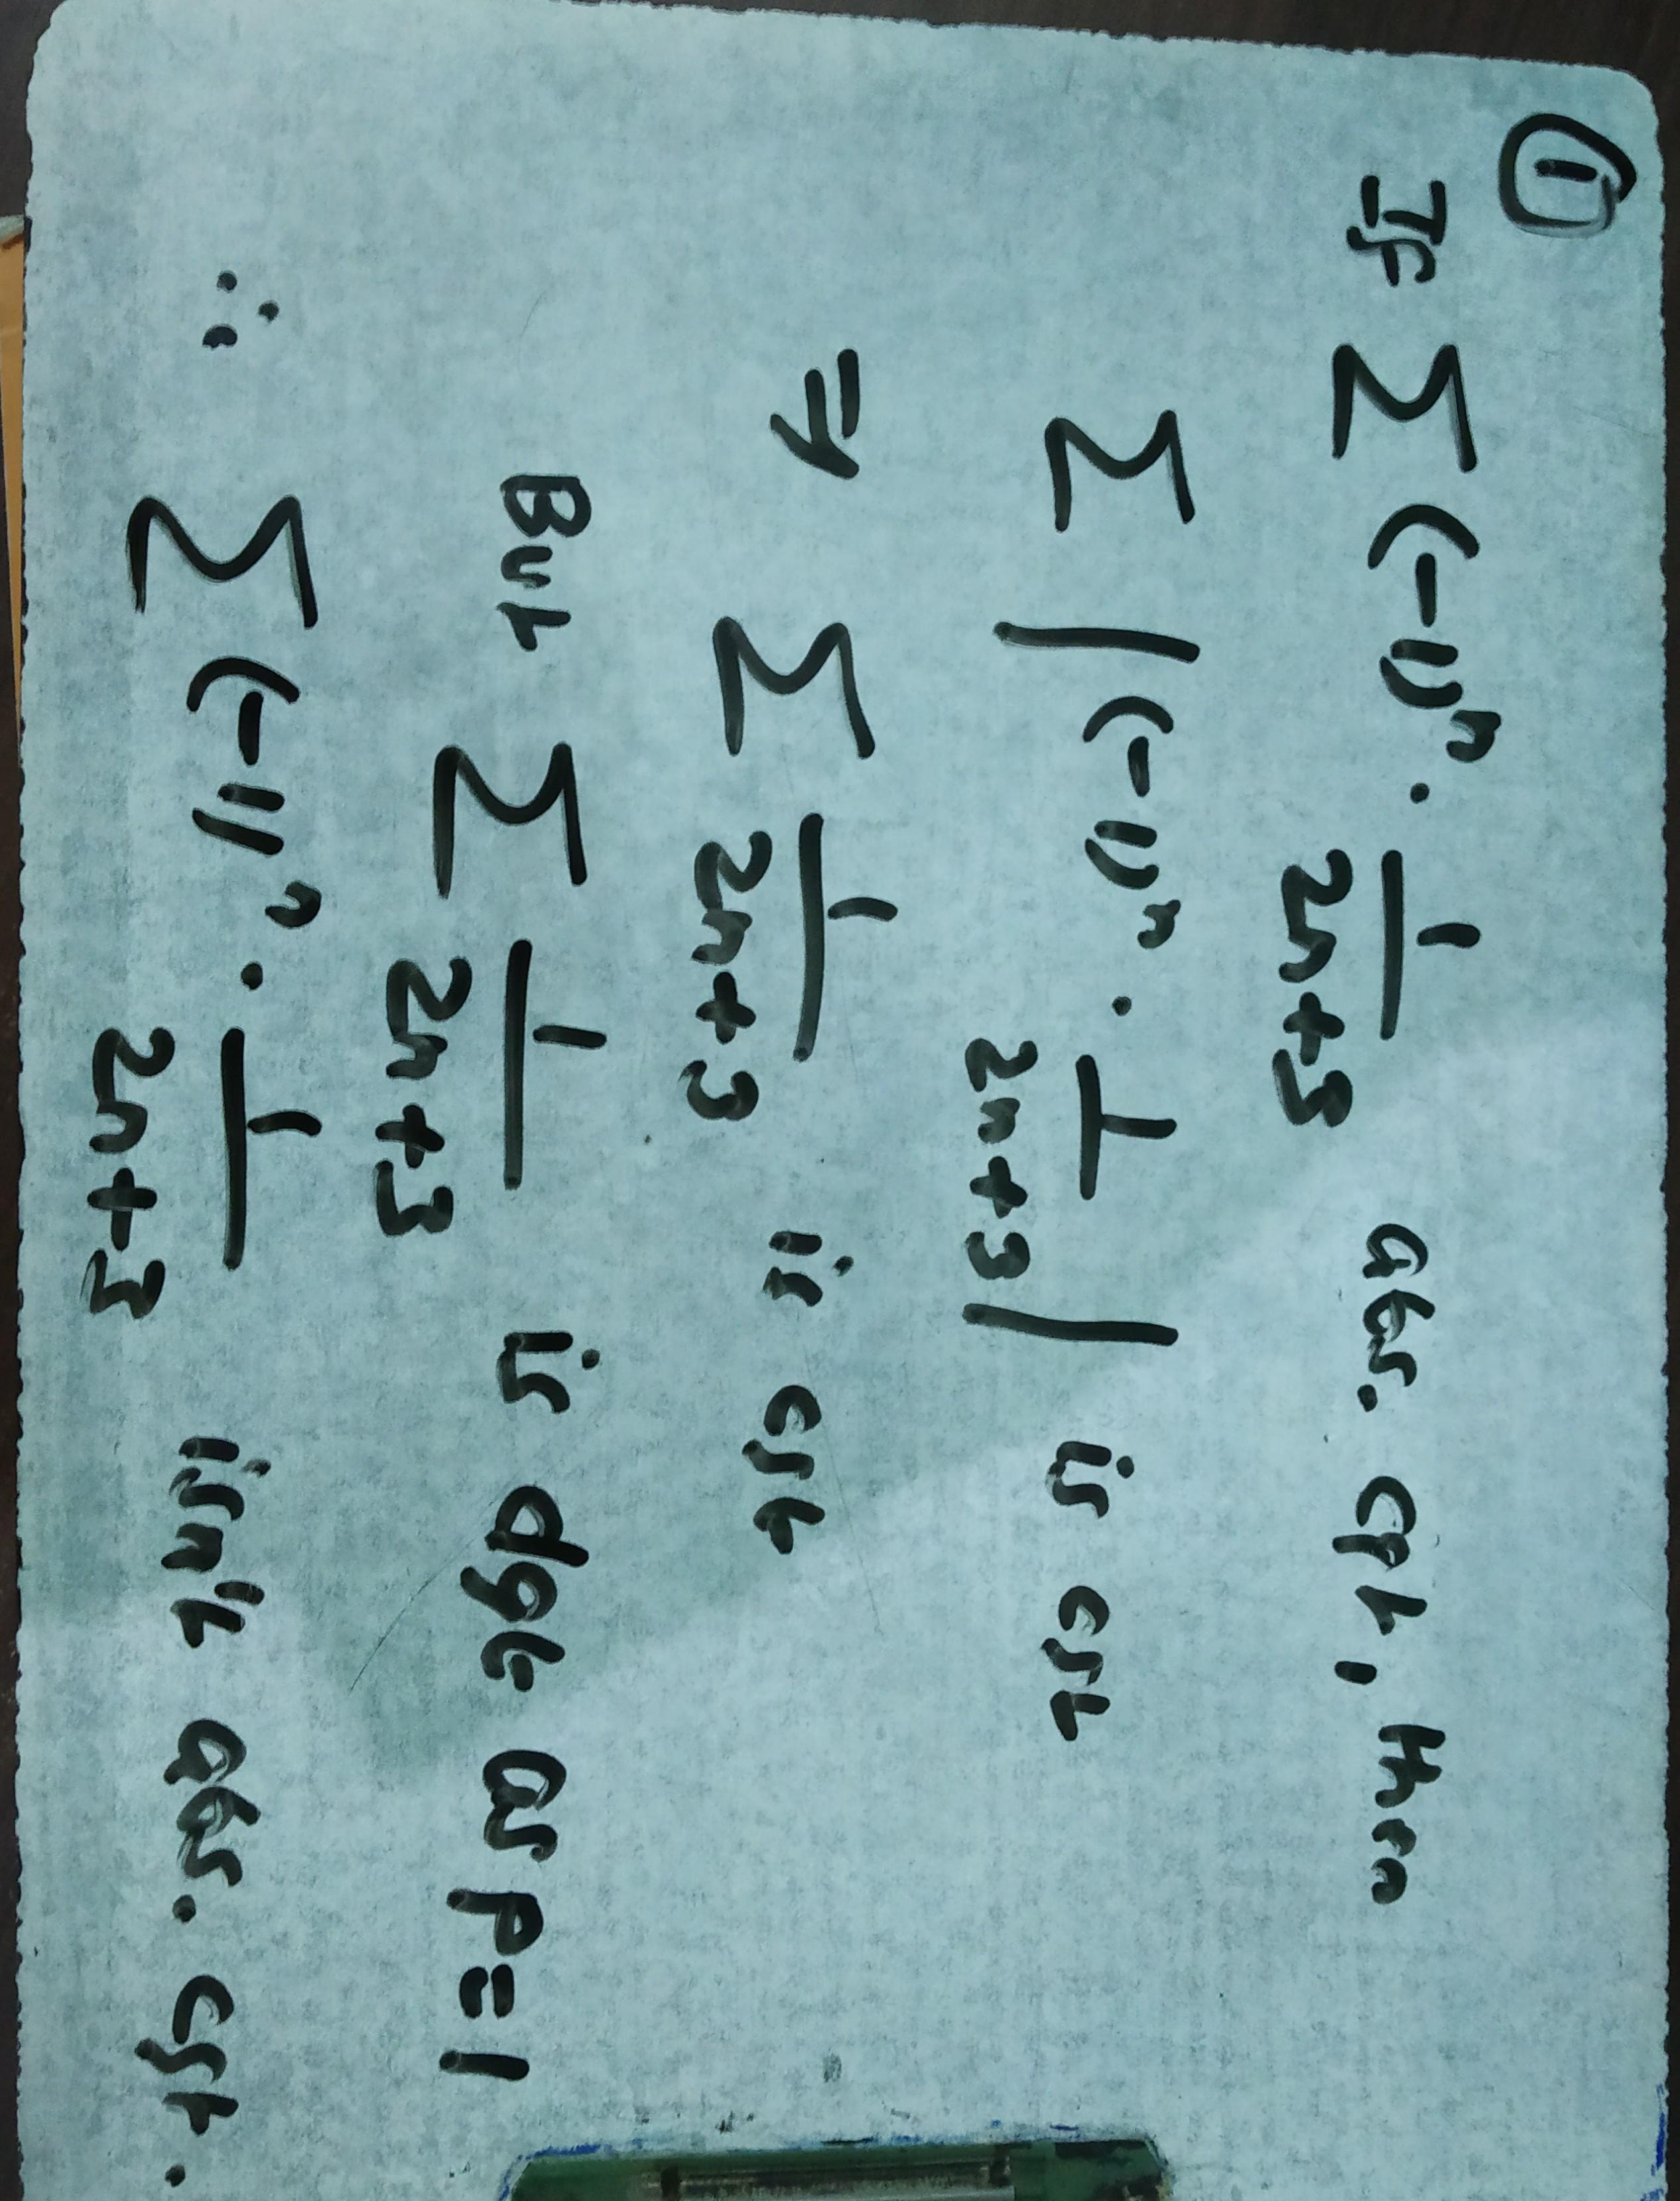 ①
If ∑ (-1)ⁿ · 1/(2n+3) abs. cgt, then
∑ |(-1)ⁿ · 1/(2n+3)| is cgt
⇒ ∑ 1/(2n+3) is cgt
But ∑ 1/(2n+3) is dgt as p=1
∴ ∑ (-1)ⁿ · 1/(2n+3) isn't abs. cgt.